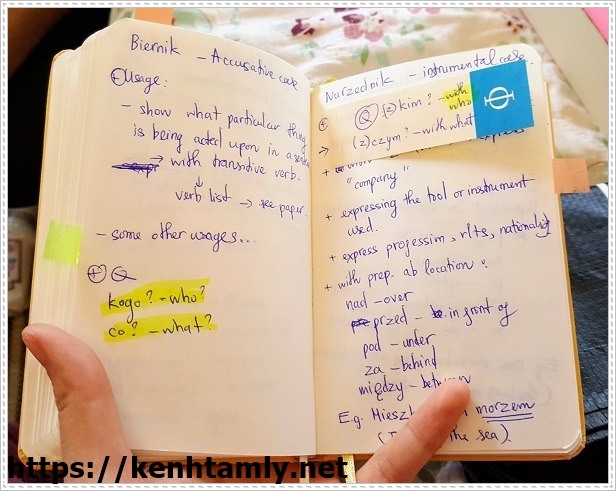 Biernik – Accusative case
+ Usage:
– show what particular thing
is being acted upon in a
→ with transitive verb.
verb list → see paper.
– some other usages...
+ Q
kogo? – who?
co? – what?
Narzednik – instrumental case.
+ Q (z) kim? – with
who
→ (z) czym? – with what
+
"company"
+ expressing the tool or instrument
used.
+ express profession, rlts, nationality
+ with prep. ab location:
nad – over
przed – in front of
pod – under
za – behind
między – between
E.g. Mieszk morzem
the sea).
https://kenhtamly.net